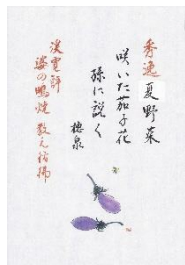 秀逸
夏野菜
咲いた茄子花
孫に説く
穂泉
婆の鴫焼
教え指揚